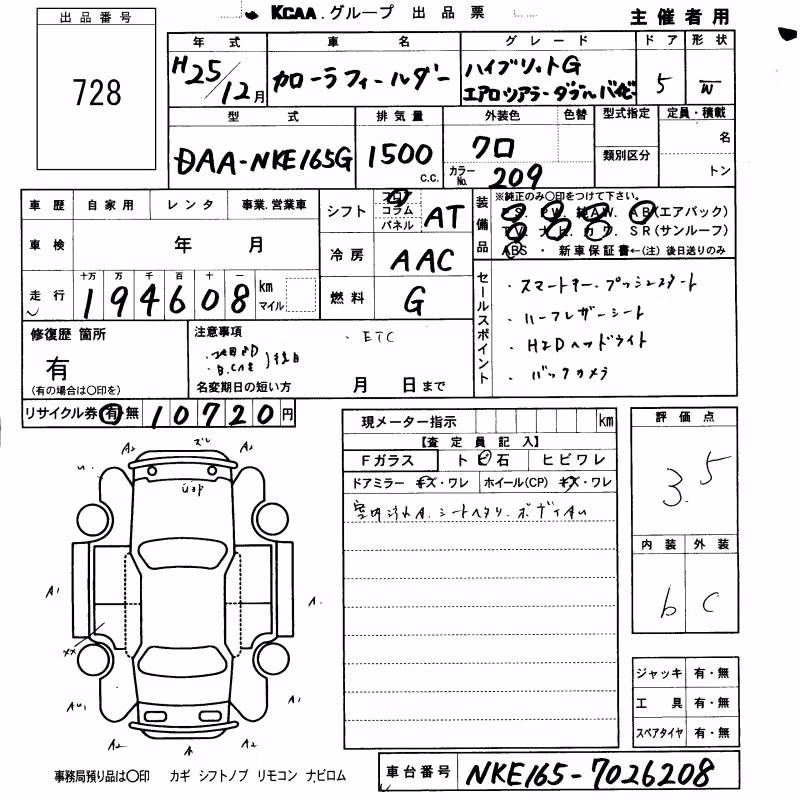 KCAA グループ 出品票
主催者用
出品番号
728
年式
H25/12月
車名
カローラフィールダー
グレード
ハイブリットG
エアロツアラーダブルバイビー
ドア
5
形状
W
型式
DAA-NKE165G
排気量
1500 C.C.
外装色
クロ
色替
カラーNo. 209
型式指定
類別区分
定員・積載
名
トン
車歴 自家用 レンタ 事業.営業車
車検 年 月
走行 十万 万 千 百 十 一
194608 km マイル
シフト フロア コラム パネル AT
冷房 AAC
燃料 G
装備品
※純正のみ○印をつけて下さい。
P.S. P.W. 純AW. AB(エアバック)
TV. ナビ. カワ. SR(サンルーフ)
ABS ・ 新車保証書←(注) 後日送りのみ
セールスポイント
・スマートキー.プッシュスタート
・ハーフレザーシート
・HIDヘッドライト
・バックカメラ
修復歴 箇所
有
(有の場合は○印を)
注意事項
・ETC
名変期日の短い方 月 日まで
リサイクル券 有・無 10720円
現メーター指示 km
【査定員記入】
Fガラス トビ石 ヒビワレ
ドアミラー キズ・ワレ ホイール(CP) キズ・ワレ
室内汚れA.シートヘタリ.ボディAU
評価点
3.5
内装 外装
b C
ジャッキ 有・無
工具 有・無
スペアタイヤ 有・無
A2 A2
U
A1 A
XX
AU1 A1
A2 A A2
事務局預り品は○印 カギ シフトノブ リモコン ナビロム
車台番号 NKE165-7026208